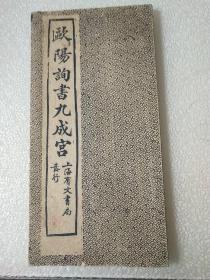 歐陽詢書九成宮
上海有文書局
發行